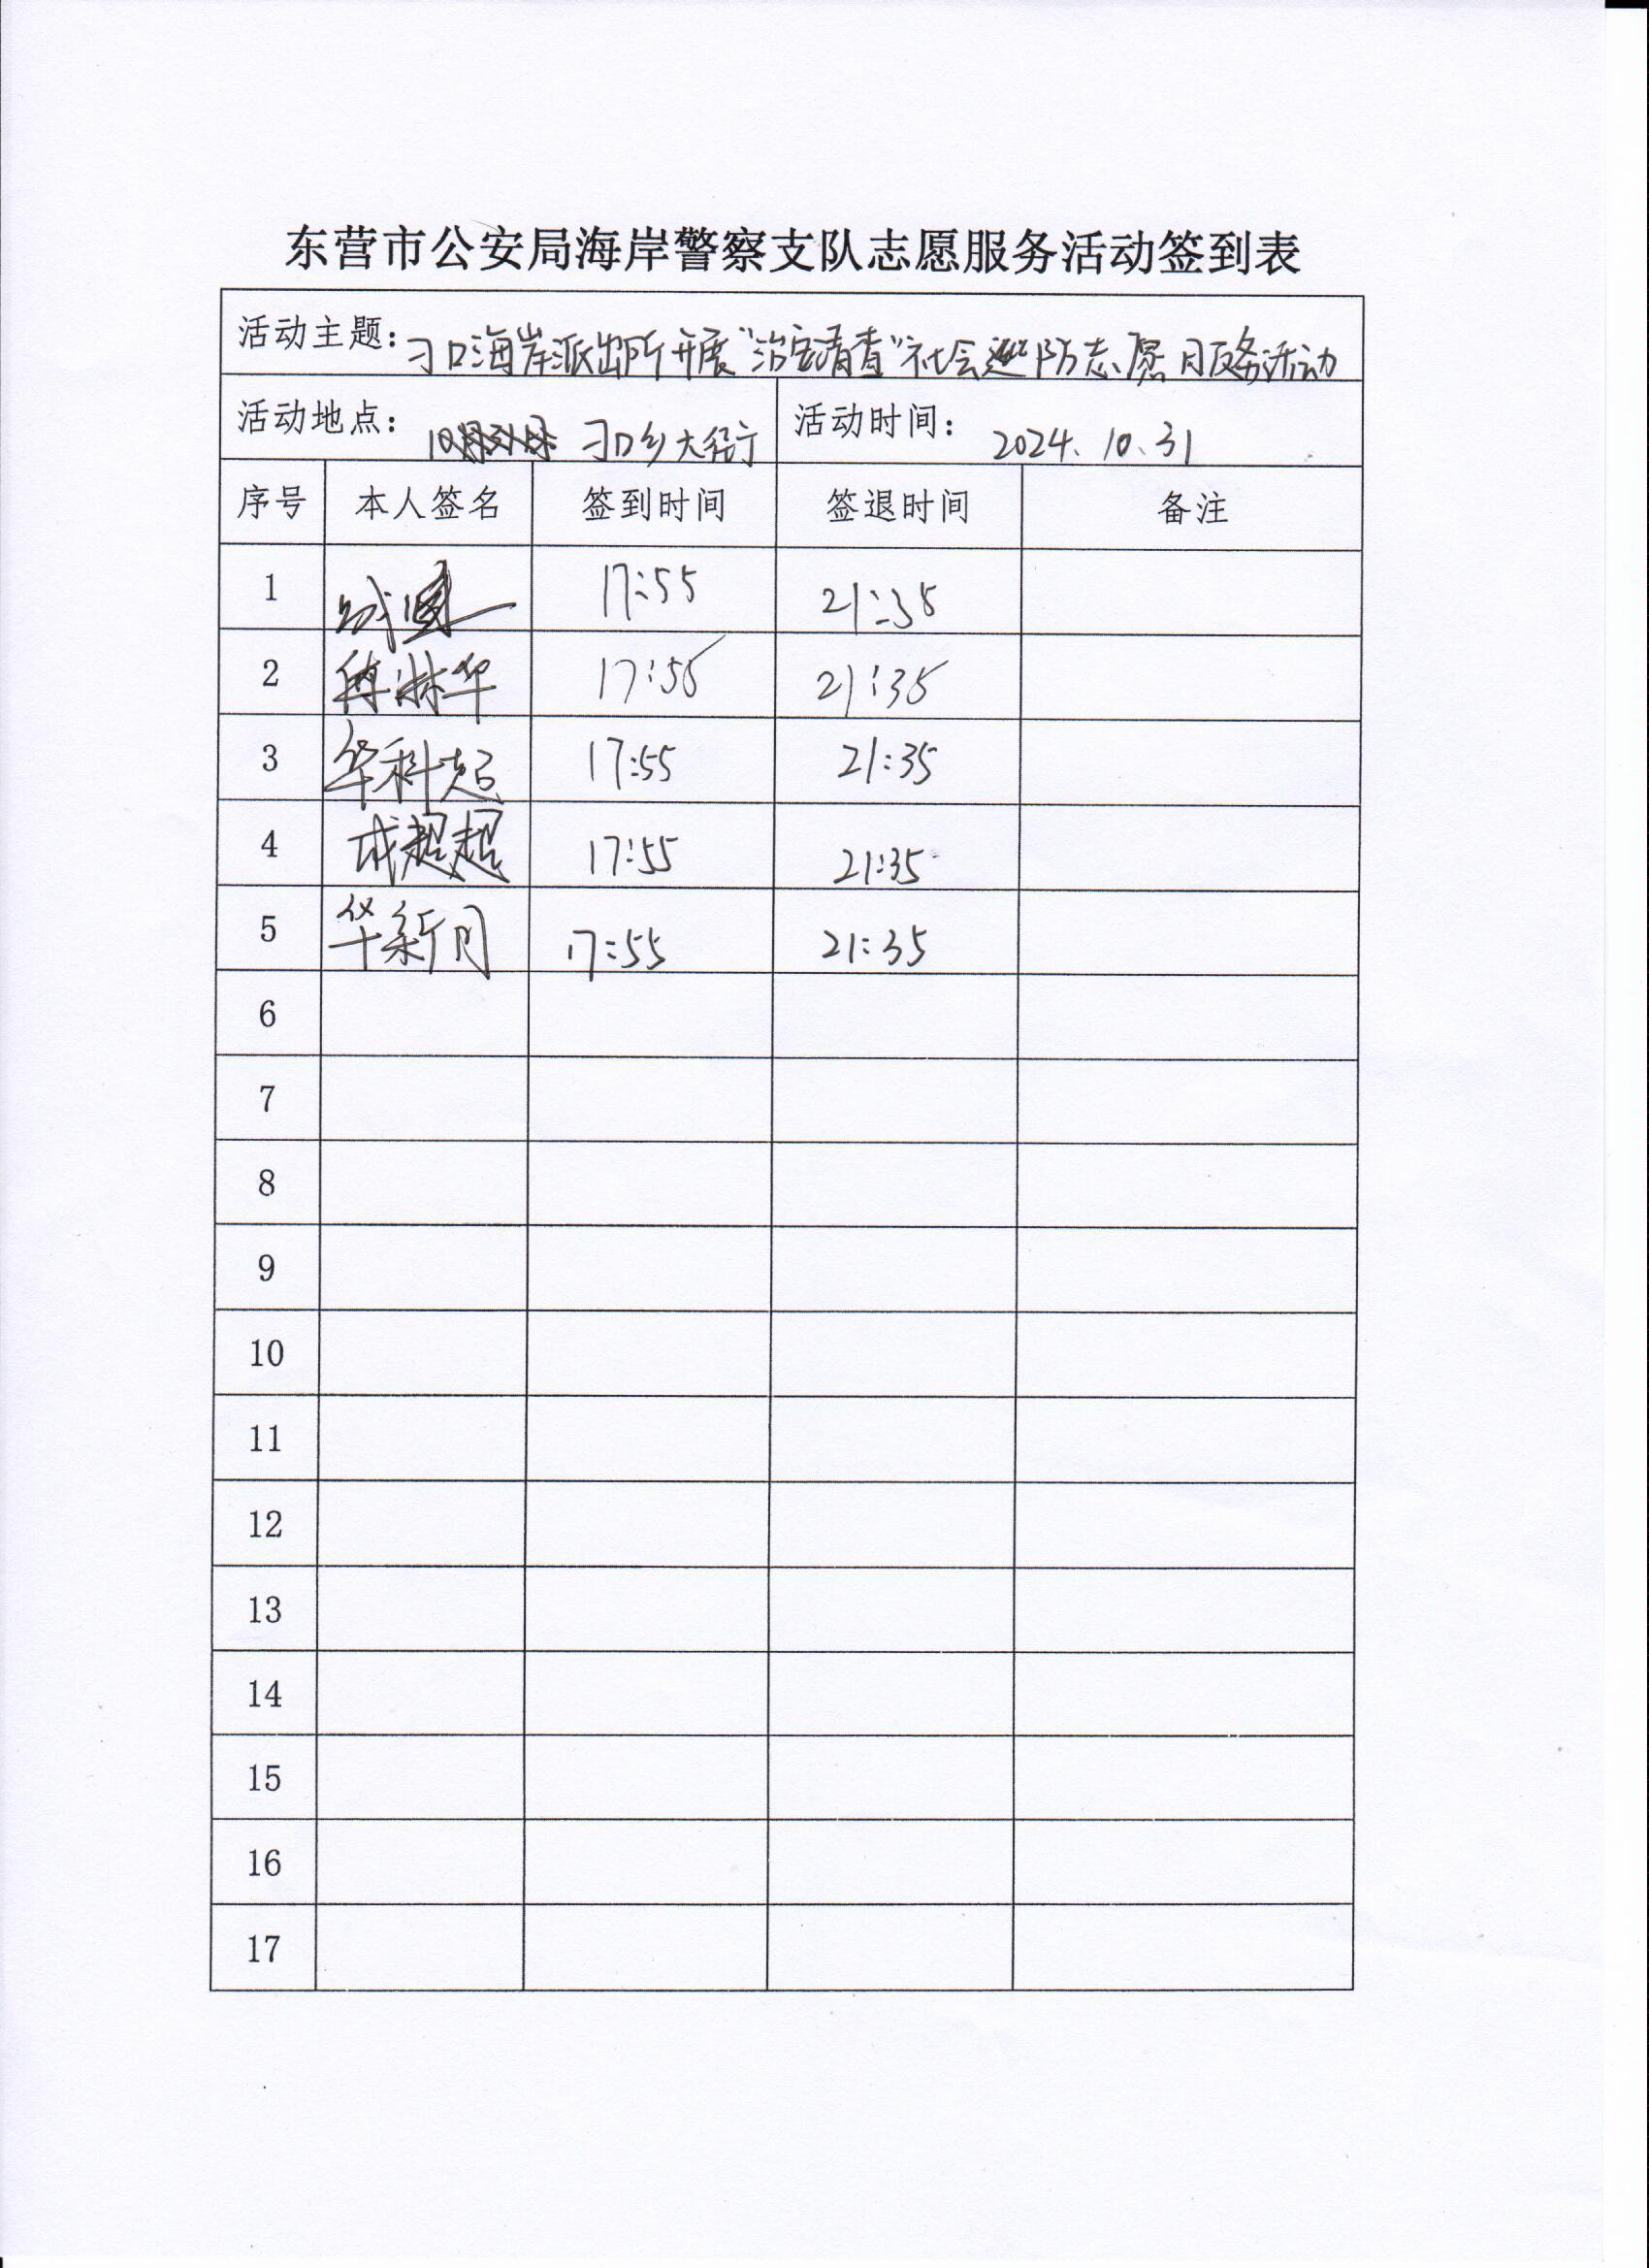 东营市公安局海岸警察支队志愿服务活动签到表
活动主题：刁口海岸派出所开展“治安清查”社会巡防志愿服务活动
活动地点：刁口乡大街 活动时间：2024.10.31
序号 本人签名 签到时间 签退时间 备注
1 17:55 21:35
2 17:55 21:35
3 华科超 17:55 21:35
4 成超超 17:55 21:35
5 华新月 17:55 21:35
6
7
8
9
10
11
12
13
14
15
16
17